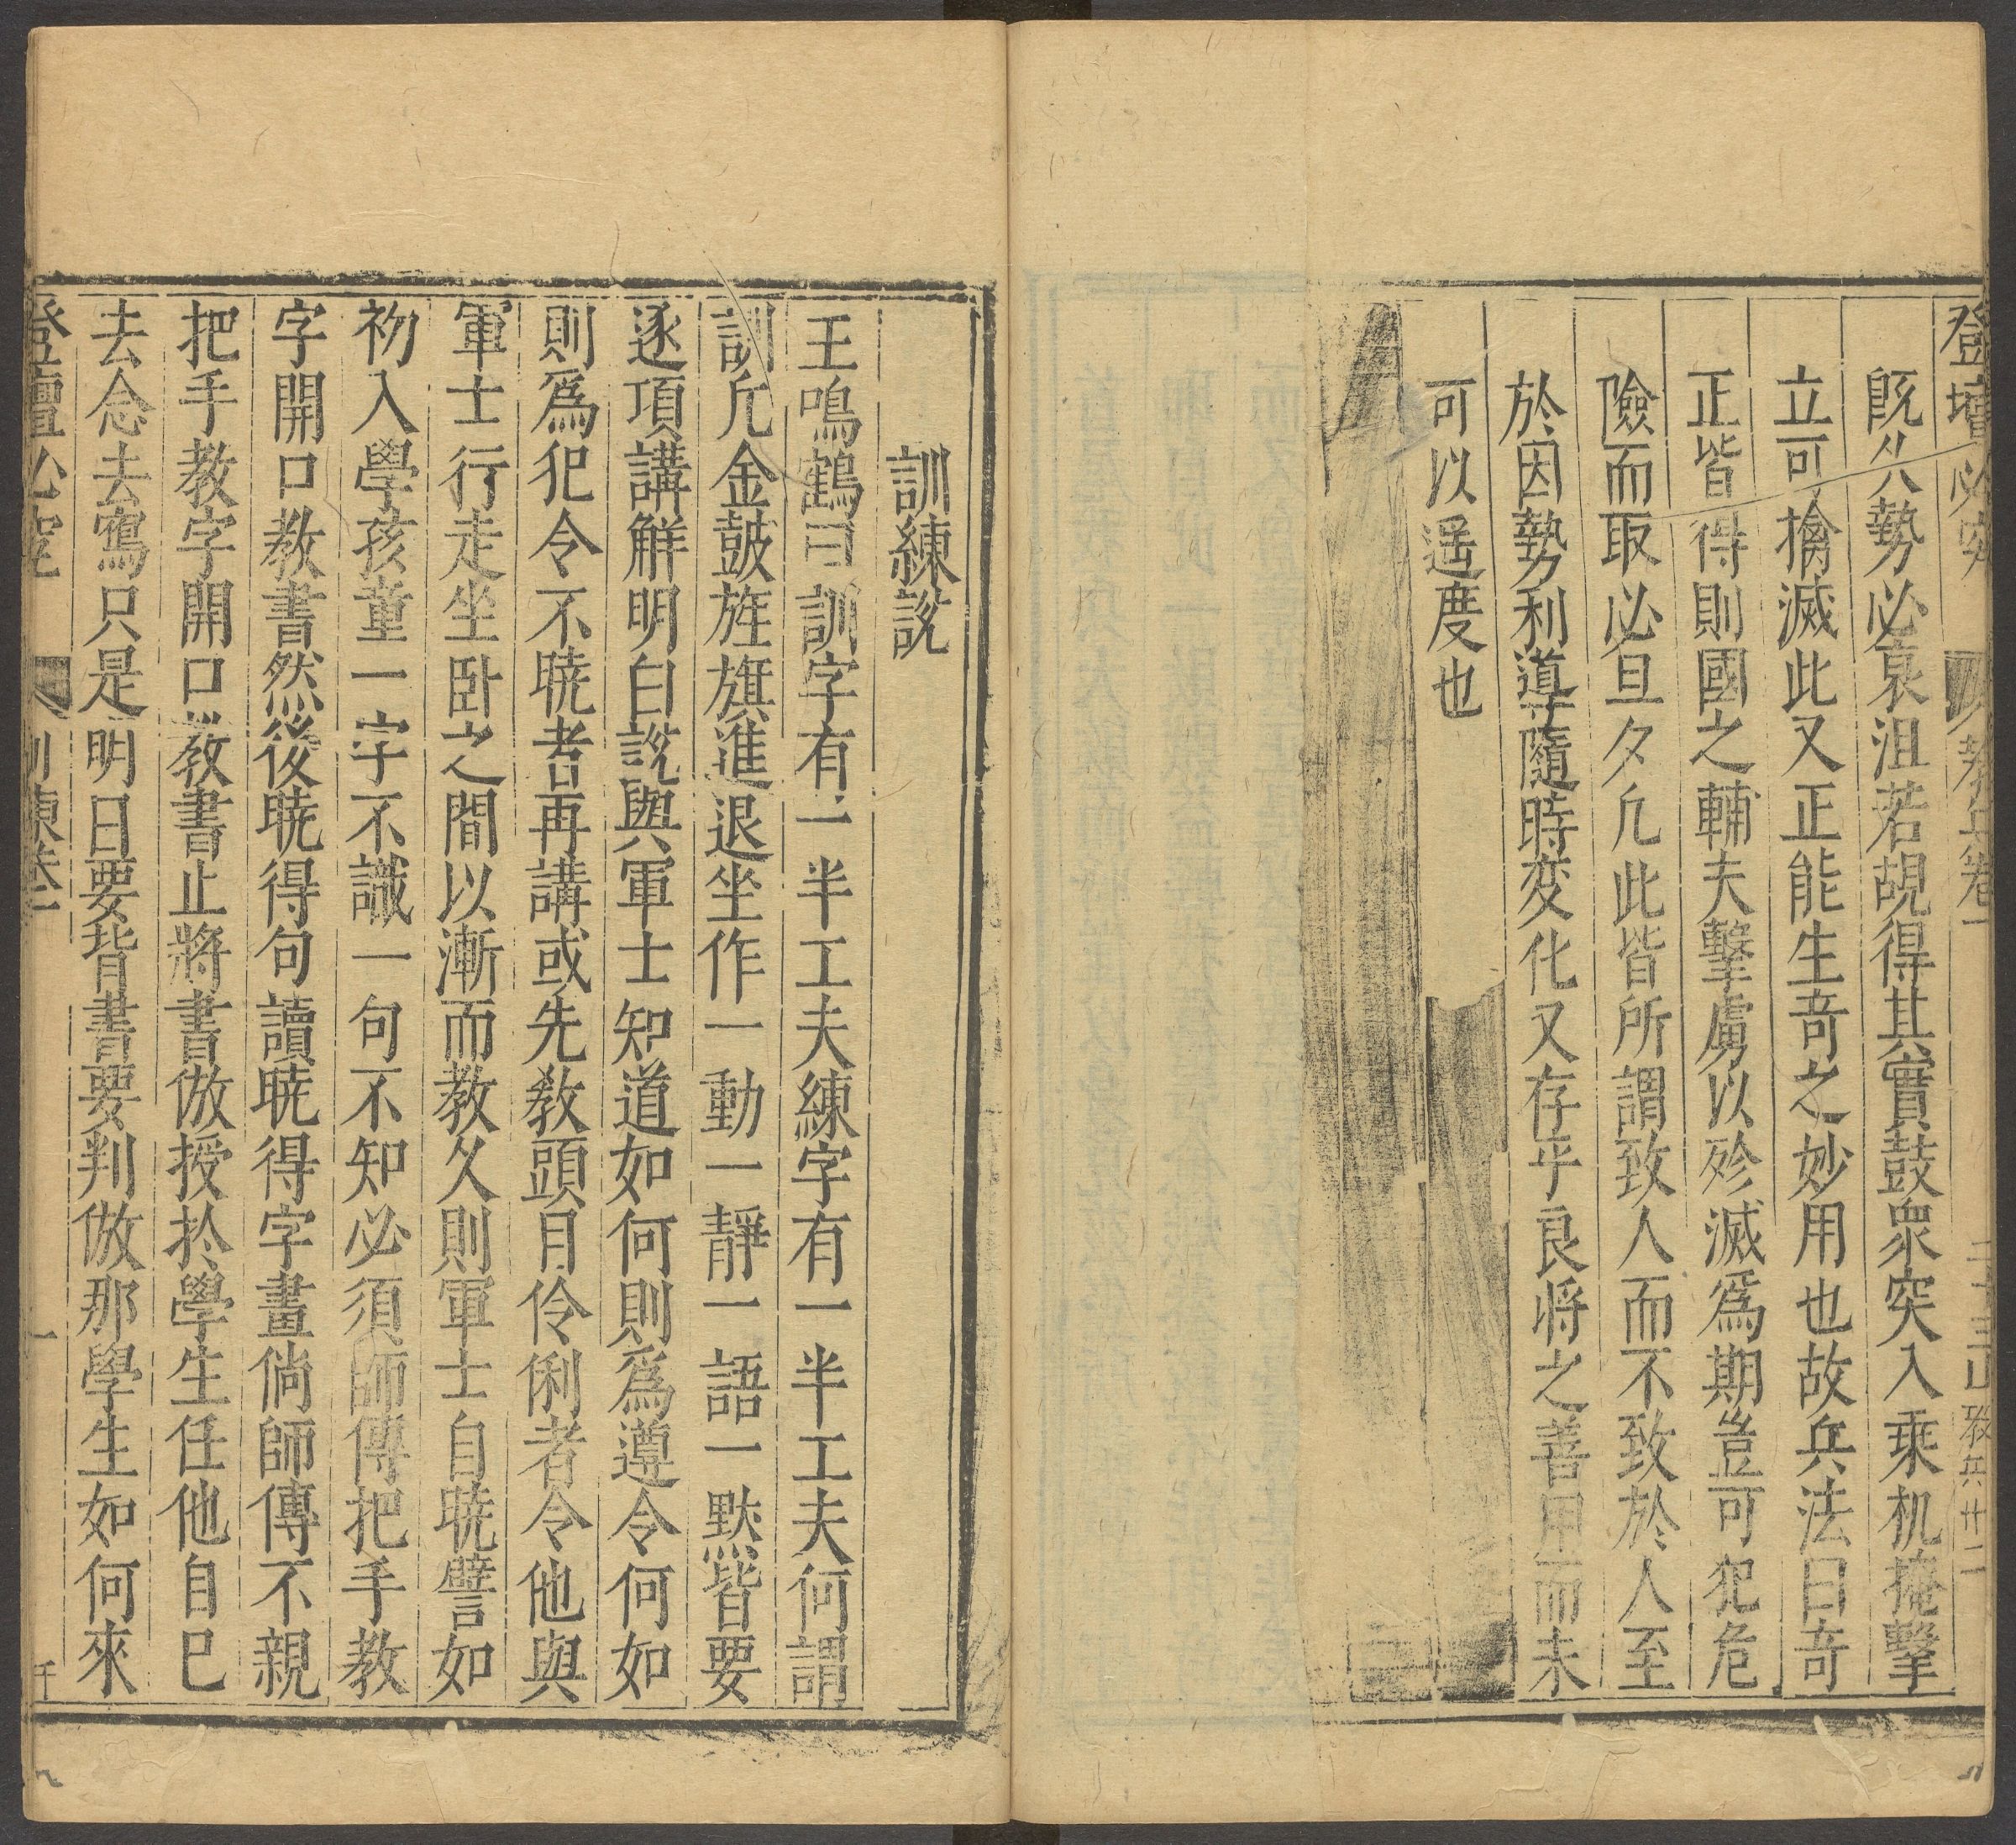 登壇必究 教兵卷一 二十三 山 教兵卅二
既久勢必衰沮若覘得其實鼓衆突入乗机掩擊
立可擒滅此又正能生竒之妙用也故兵法曰竒
正皆得則國之輔夫擊虜以殄滅爲期豈可犯危
險而取必旦夕凢此皆所謂致人而不致於人至
於因勢利導隨時変化又存乎良将之善用而未
可以遥度也
訓練說
王鳴鶴曰訓字有一半工夫練字有一半工夫何謂
訓凢金鼓旌旗進退坐作一動一靜一語一默皆要
逐項講解明白說與軍士知道如何則爲遵令何如
則爲犯令不曉者再講或先教頭目伶俐者令他與
軍士行走坐卧之間以漸而教久則軍士自曉譬如
初入學孩童一字不識一句不知必須師傅把手教
字開口教書然後曉得句讀曉得字畫倘師傅不親
把手教字開口教書止將書倣授於學生任他自巳
去念去寫只是明日要背書要判倣那學生如何來
登壇必究 訓練卷一 一